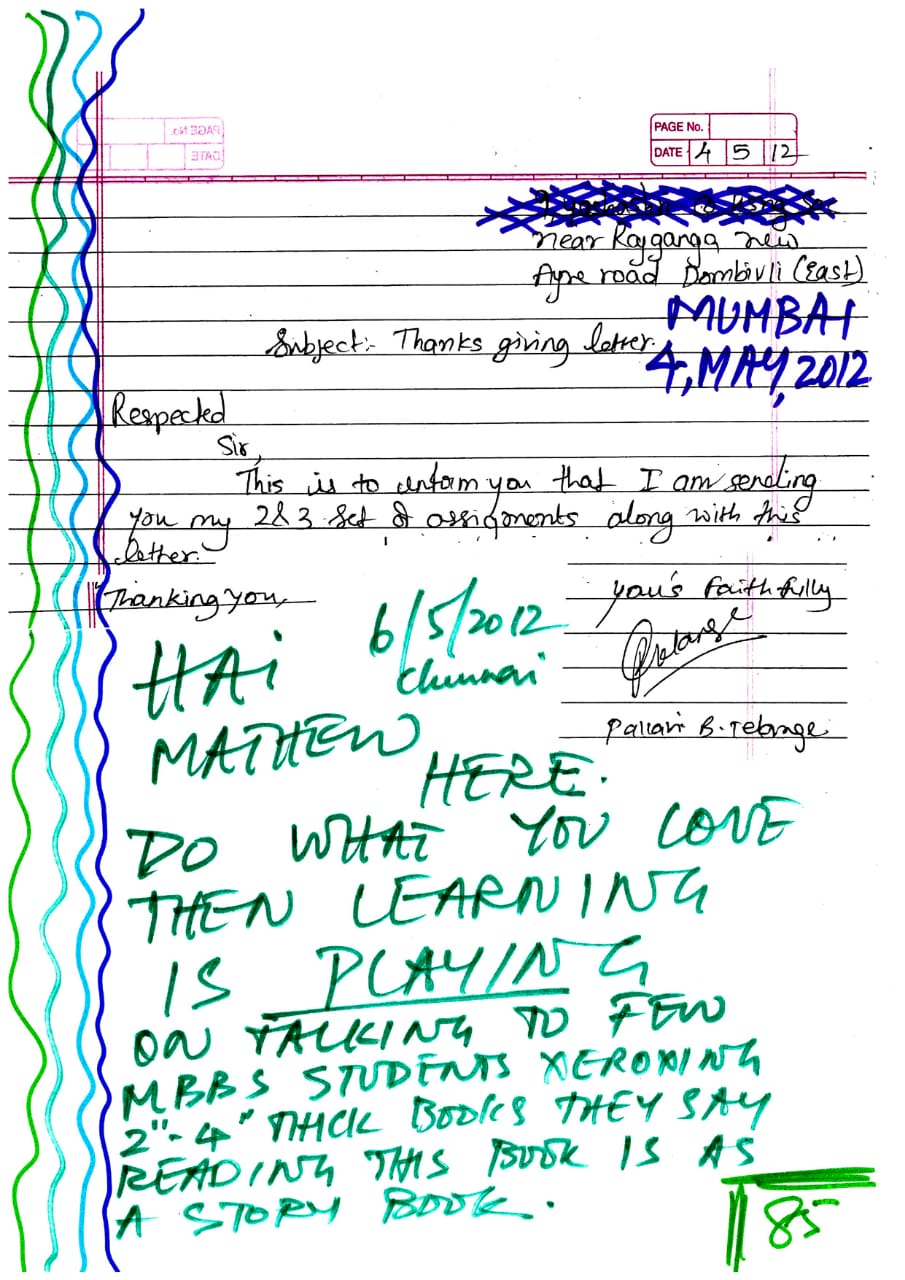 PAGE No.
DATE 4 5 12
near Rajganga new
Ayre road Dombivli (East)
MUMBAI
Subject:- Thanks giving letter.
4, MAY, 2012
Respected
Sir,
This is to inform you that I am sending
you my 2 & 3 set of assignments along with this
letter.
Thanking you,
your's faithfully
6/5/2012
Chennai
HAi
MATHEW
HERE.
Pallavi B. Telange
DO WHAT YOU LOVE
THEN LEARNING
IS PLAYING
ON TALKING TO FEW
MBBS STUDENTS XEROXING
2"-4" THICK BOOKS THEY SAY
READING THIS BOOK IS AS
A STORY BOOK.
85